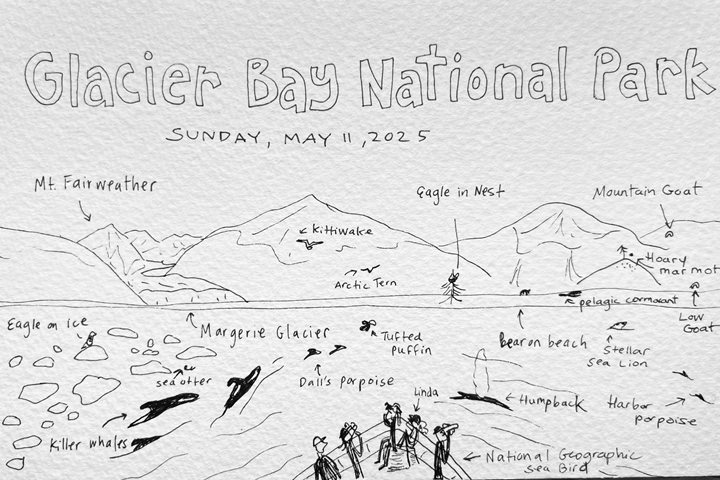 Glacier Bay National Park
SUNDAY, MAY 11, 2025
Mt. Fairweather
Eagle in Nest
Mountain Goat
Kittiwake
Hoary
marmot
Arctic Tern
pelagic cormorant
Low
Goat
Eagle on Ice
Margerie Glacier
Tufted
puffin
Bear on beach
Stellar
Sea Lion
sea otter
Dall's porpoise
Linda
Humpback
Harbor
porpoise
Killer whales
National Geographic
Sea Bird